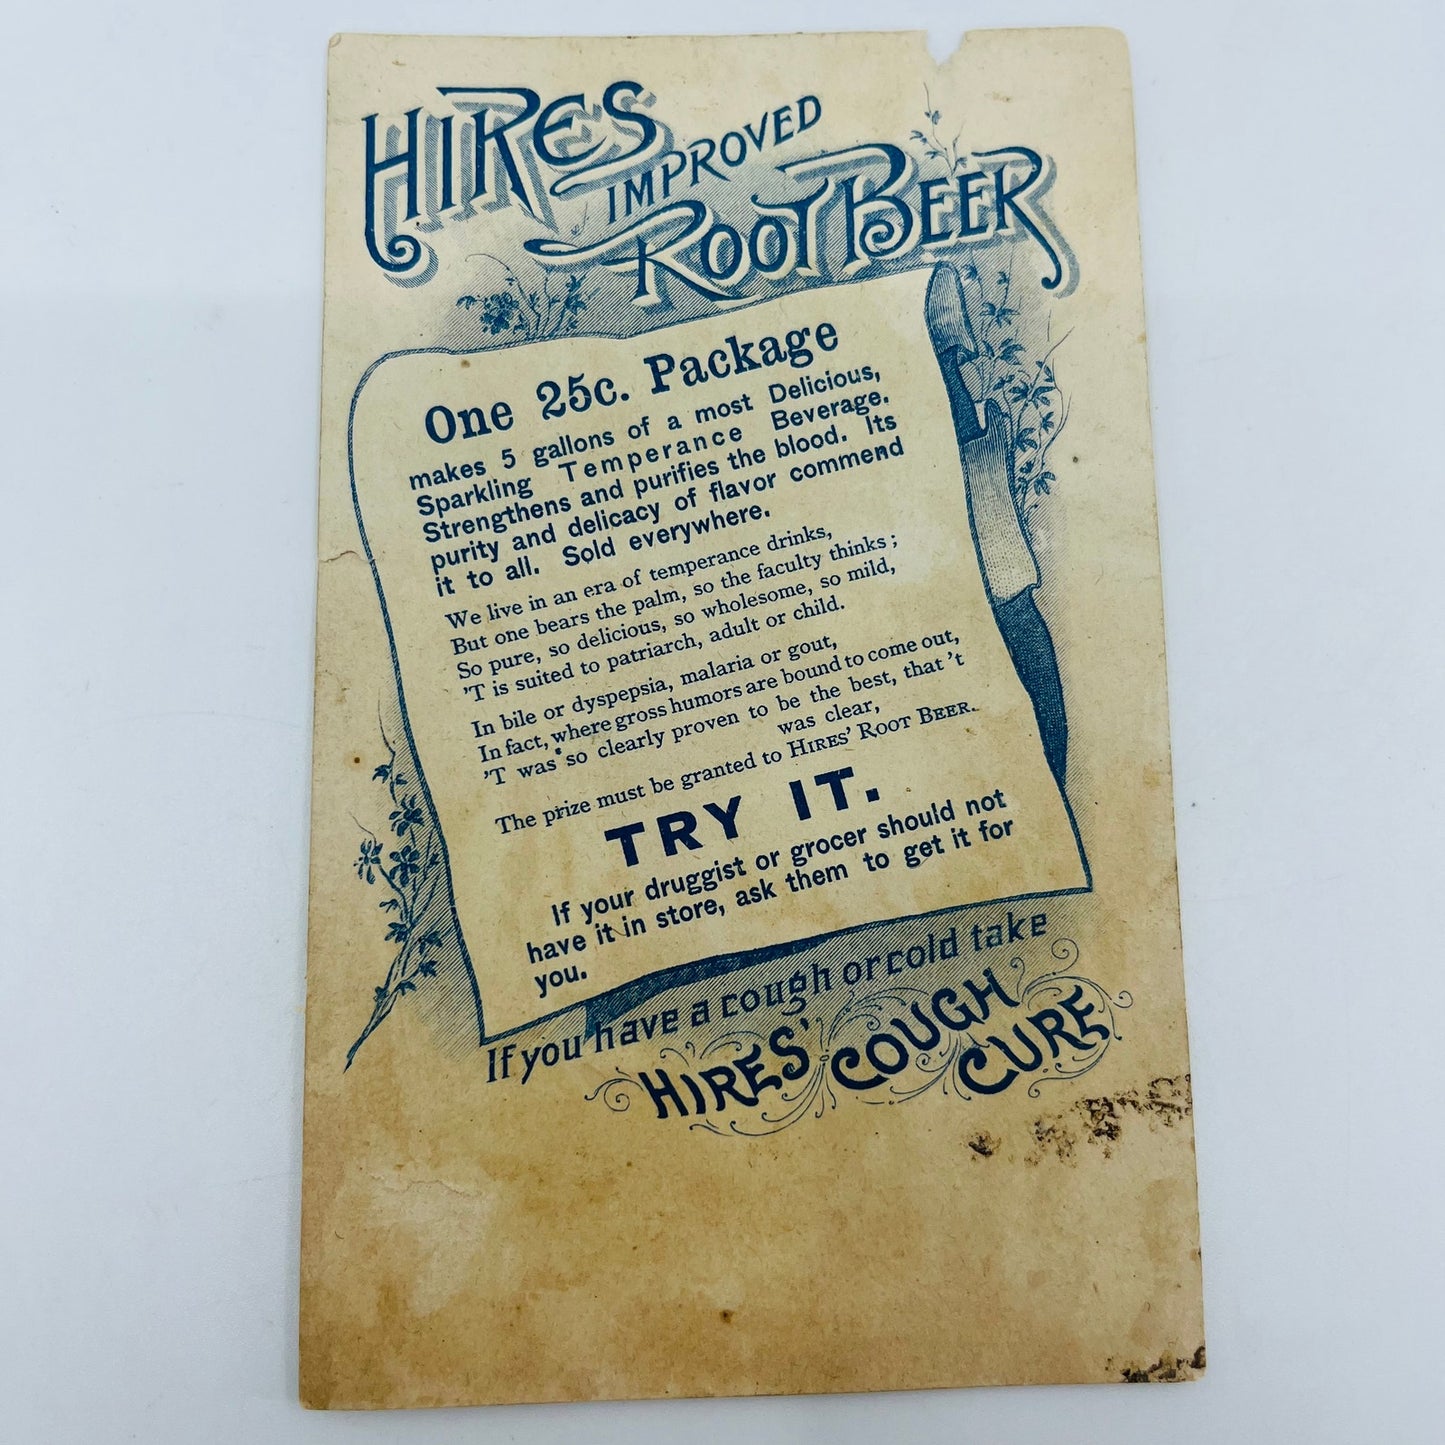 HIRES
IMPROVED
ROOT BEER
One 25c. Package
makes 5 gallons of a most Delicious,
Sparkling Temperance Beverage.
Strengthens and purifies the blood. Its
purity and delicacy of flavor commend
it to all. Sold everywhere.
We live in an era of temperance drinks,
But one bears the palm, so the faculty thinks;
So pure, so delicious, so wholesome, so mild,
'T is suited to patriarch, adult or child.
In bile or dyspepsia, malaria or gout,
In fact, where gross humors are bound to come out,
'T was so clearly proven to be the best, that 't
was clear,
The prize must be granted to HIRES' ROOT BEER.
TRY IT.
If your druggist or grocer should not
have it in store, ask them to get it for
you.
If you have a cough or cold take
HIRES' COUGH
CURE